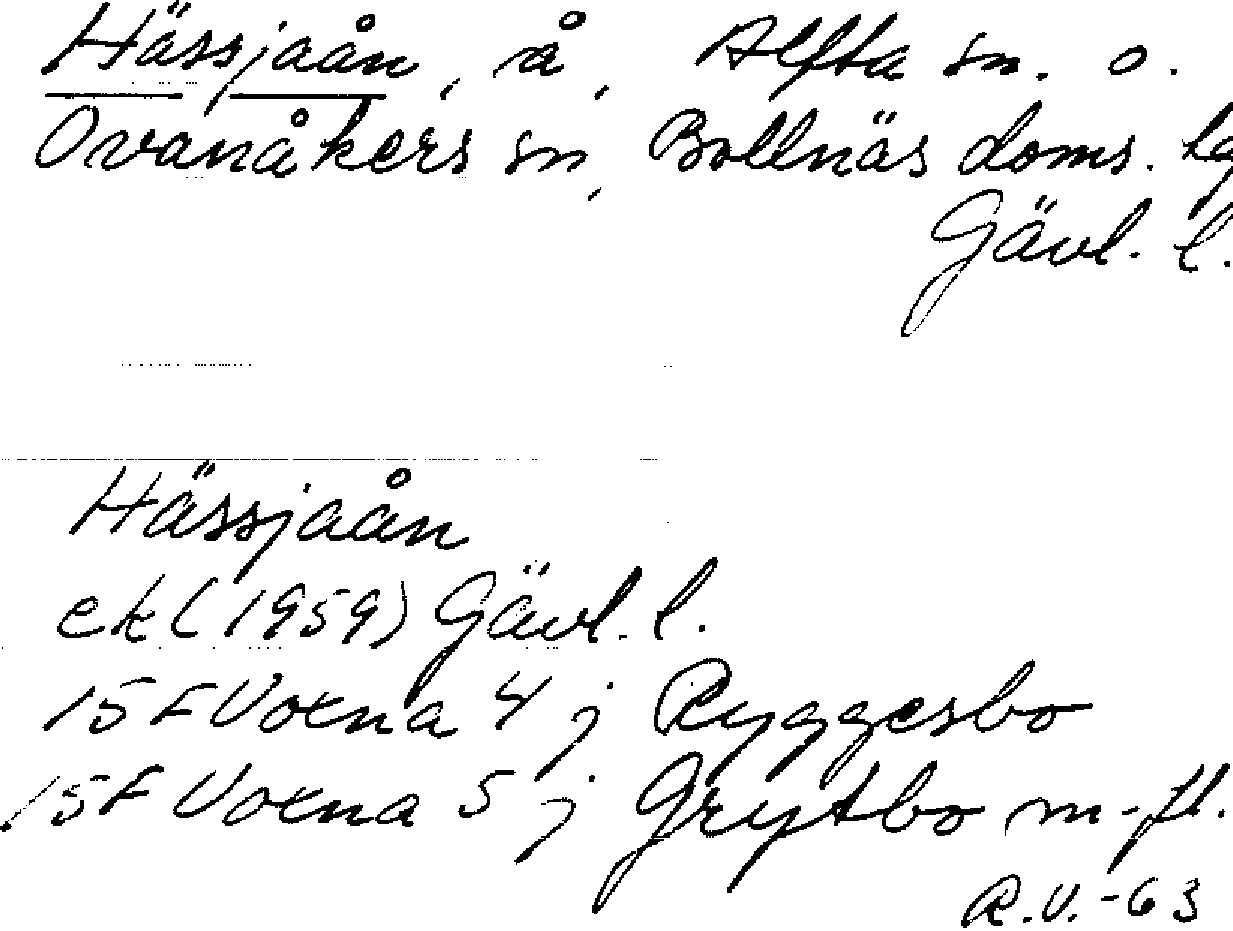 Hässjaån, å, Alfta sn. o.
Ovanåkers sn, Bollnäs doms.
Gävl. l.
Hässjaån
ek (1959) Gävl. l.
15F Voxna 4 j Ryggesbo
15F Voxna 5 j Grytbo m.fl.
R.V.-63